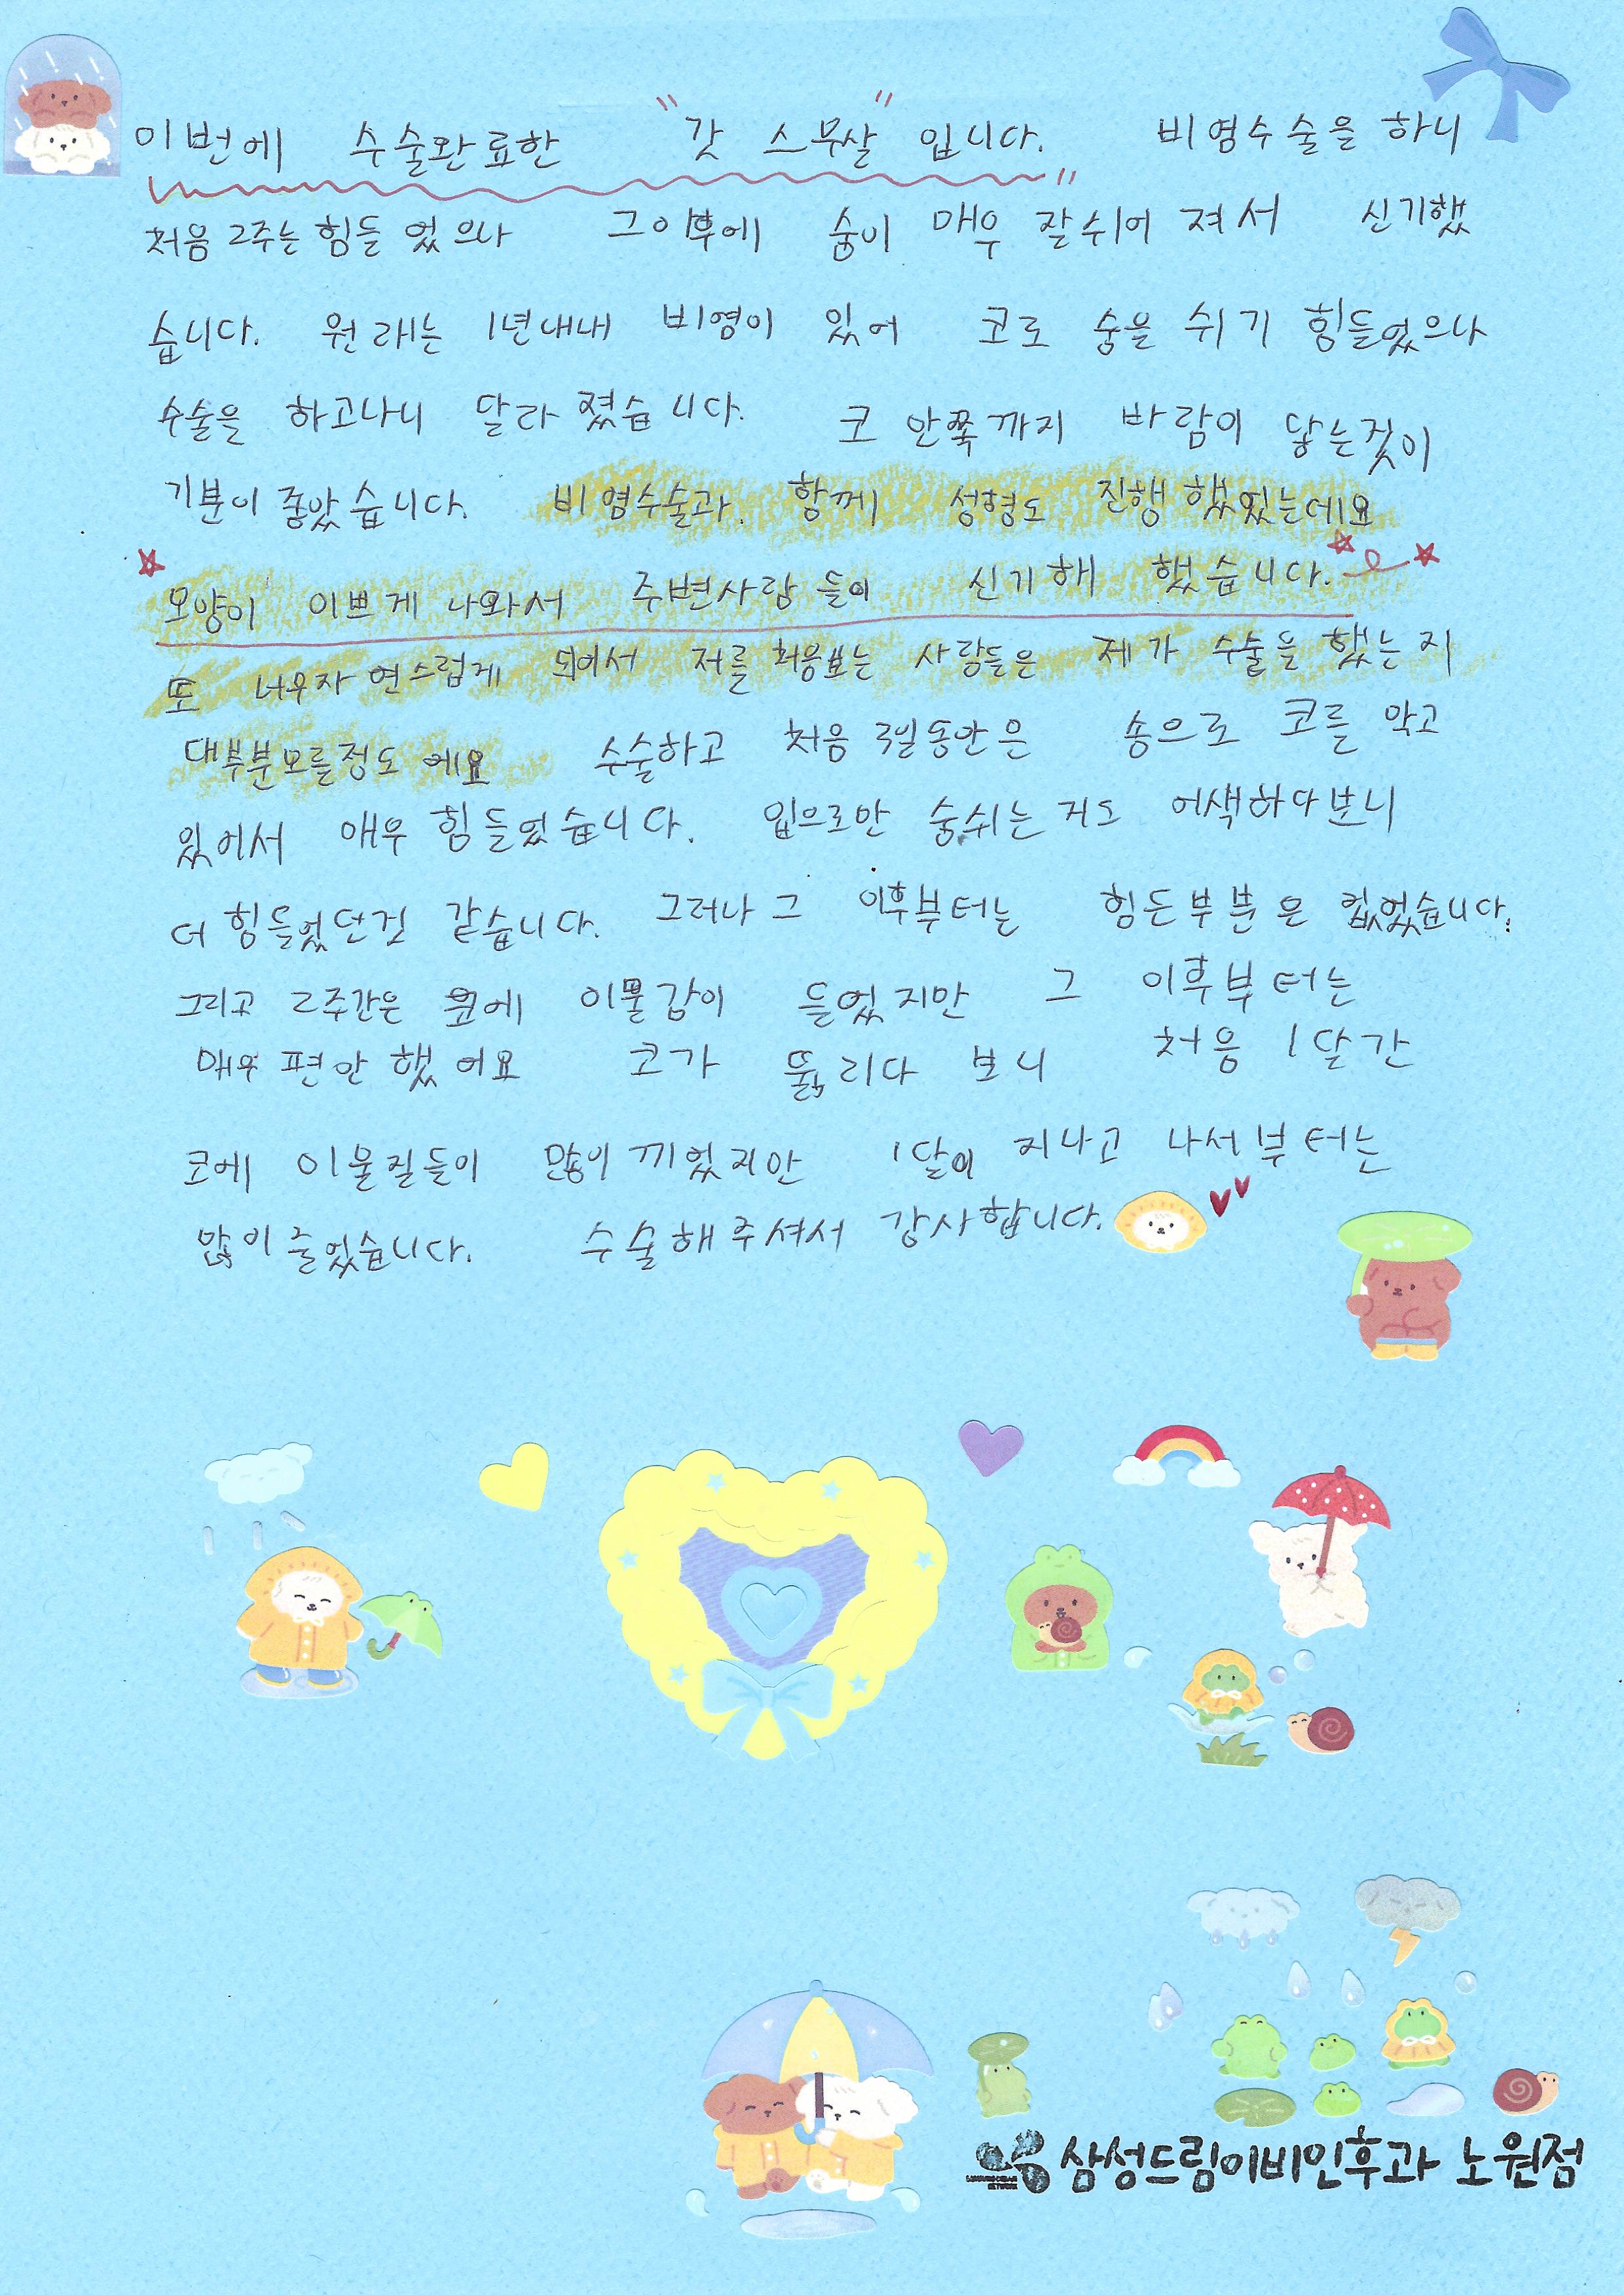 이번에 수술완료한 "갓 스무살" 입니다. 비염수술을 하니
처음 2주는 힘들었으나 그 이후에 숨이 매우 잘쉬어져서 신기했
습니다. 원래는 1년내내 비염이 있어 코로 숨을 쉬기 힘들었으나
수술을 하고나니 달라졌습니다. 코 안쪽까지 바람이 닿는것이
기분이 좋았습니다. 비염수술과 함께 성형도 진행했었는데요
모양이 이쁘게 나와서 주변사람들이 신기해 했습니다.
또 너무자연스럽게 되어서 저를 처음보는 사람들은 제가 수술을 했는지
대부분모를정도에요 수술하고 처음 3일동안은 솜으로 코를 막고
있어서 매우 힘들었습니다. 입으로만 숨쉬는거도 어색하다보니
더 힘들었던것 같습니다. 그러나 그 이후부터는 힘든부분은 없었습니다.
그리고 2주간은 코에 이물감이 들었지만 그 이후부터는
매우 편안했어요 코가 뚫리다 보니 처음 1달간
코에 이물질들이 많이 끼었지만 1달이 지나고 나서부터는
많이 줄었습니다. 수술해주셔서 감사합니다.
삼성드림이비인후과 노원점